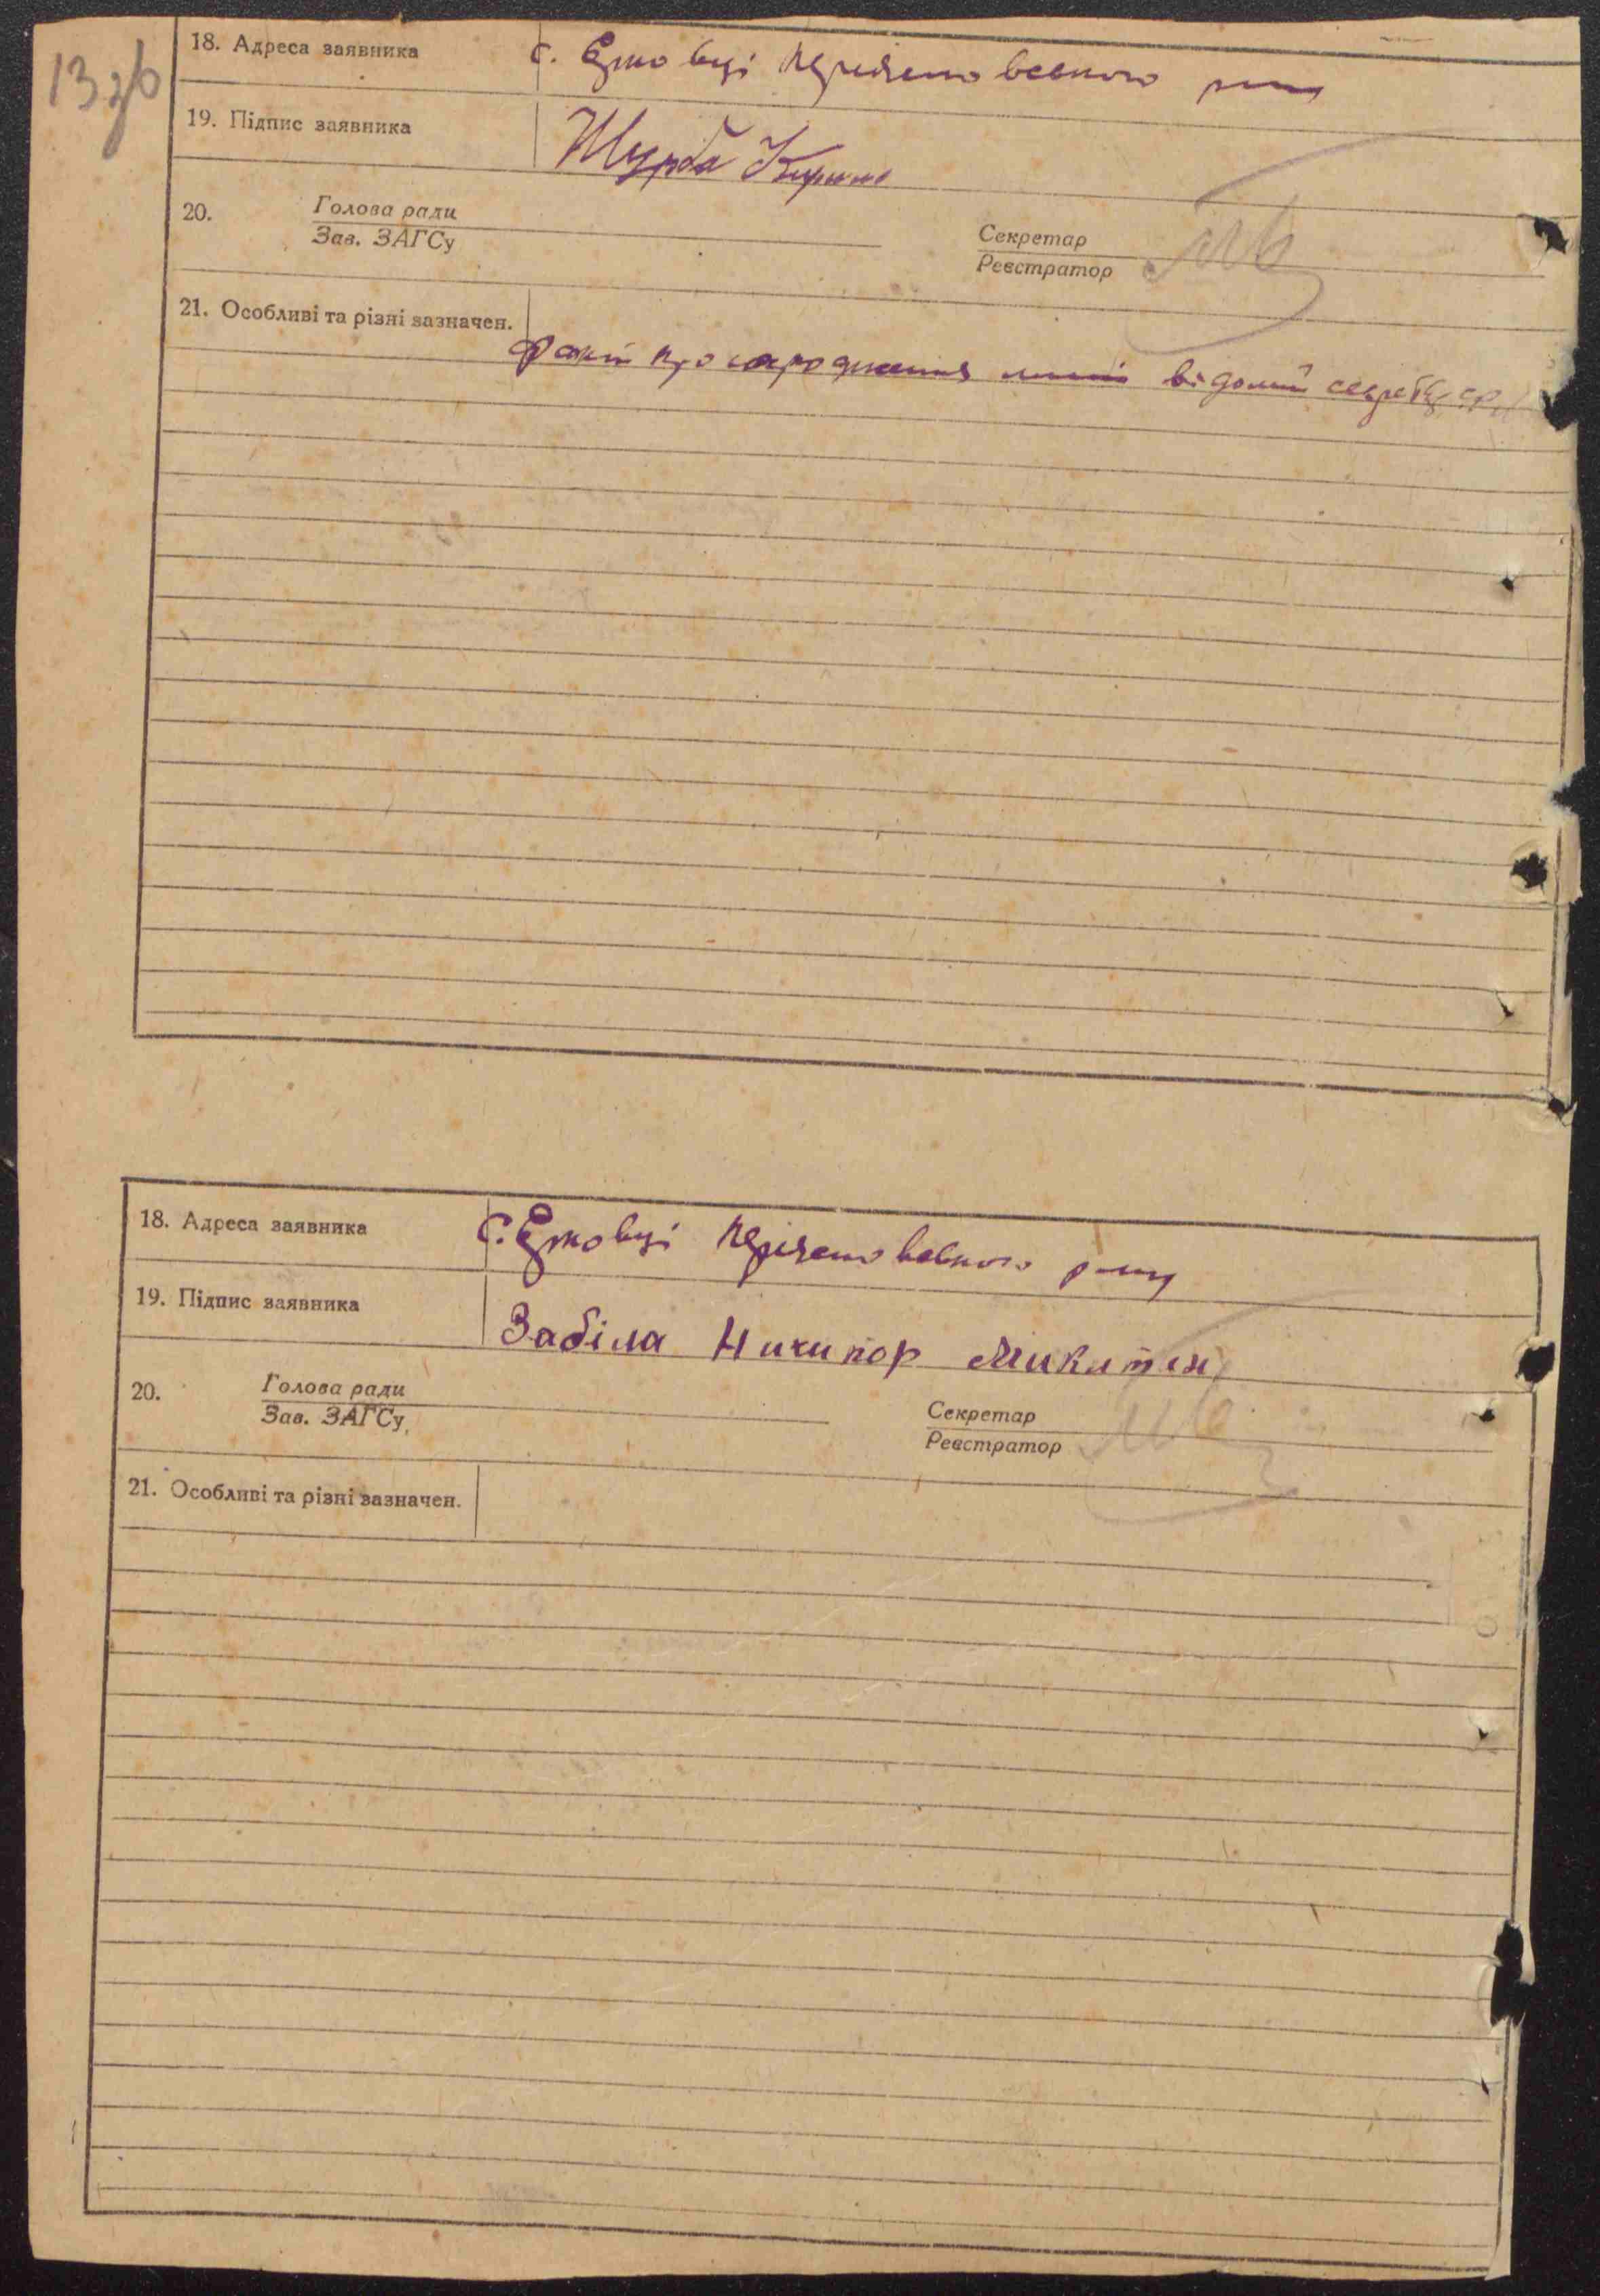 13зб
18. Адреса заявника с. Єрковці Переяславського р-ну
19. Підпис заявника Шурба Кирило
20. Голова ради
Зав. ЗАГСу
Секретар
Реєстратор
21. Особливі та різні зазначен.
Факт про народження відомий секретар
18. Адреса заявника с. Єрковці Переяславського р-ну
19. Підпис заявника Забіла Ничипор Микитич
20. Голова ради
Зав. ЗАГСу
Секретар
Реєстратор
21. Особливі та різні зазначен.